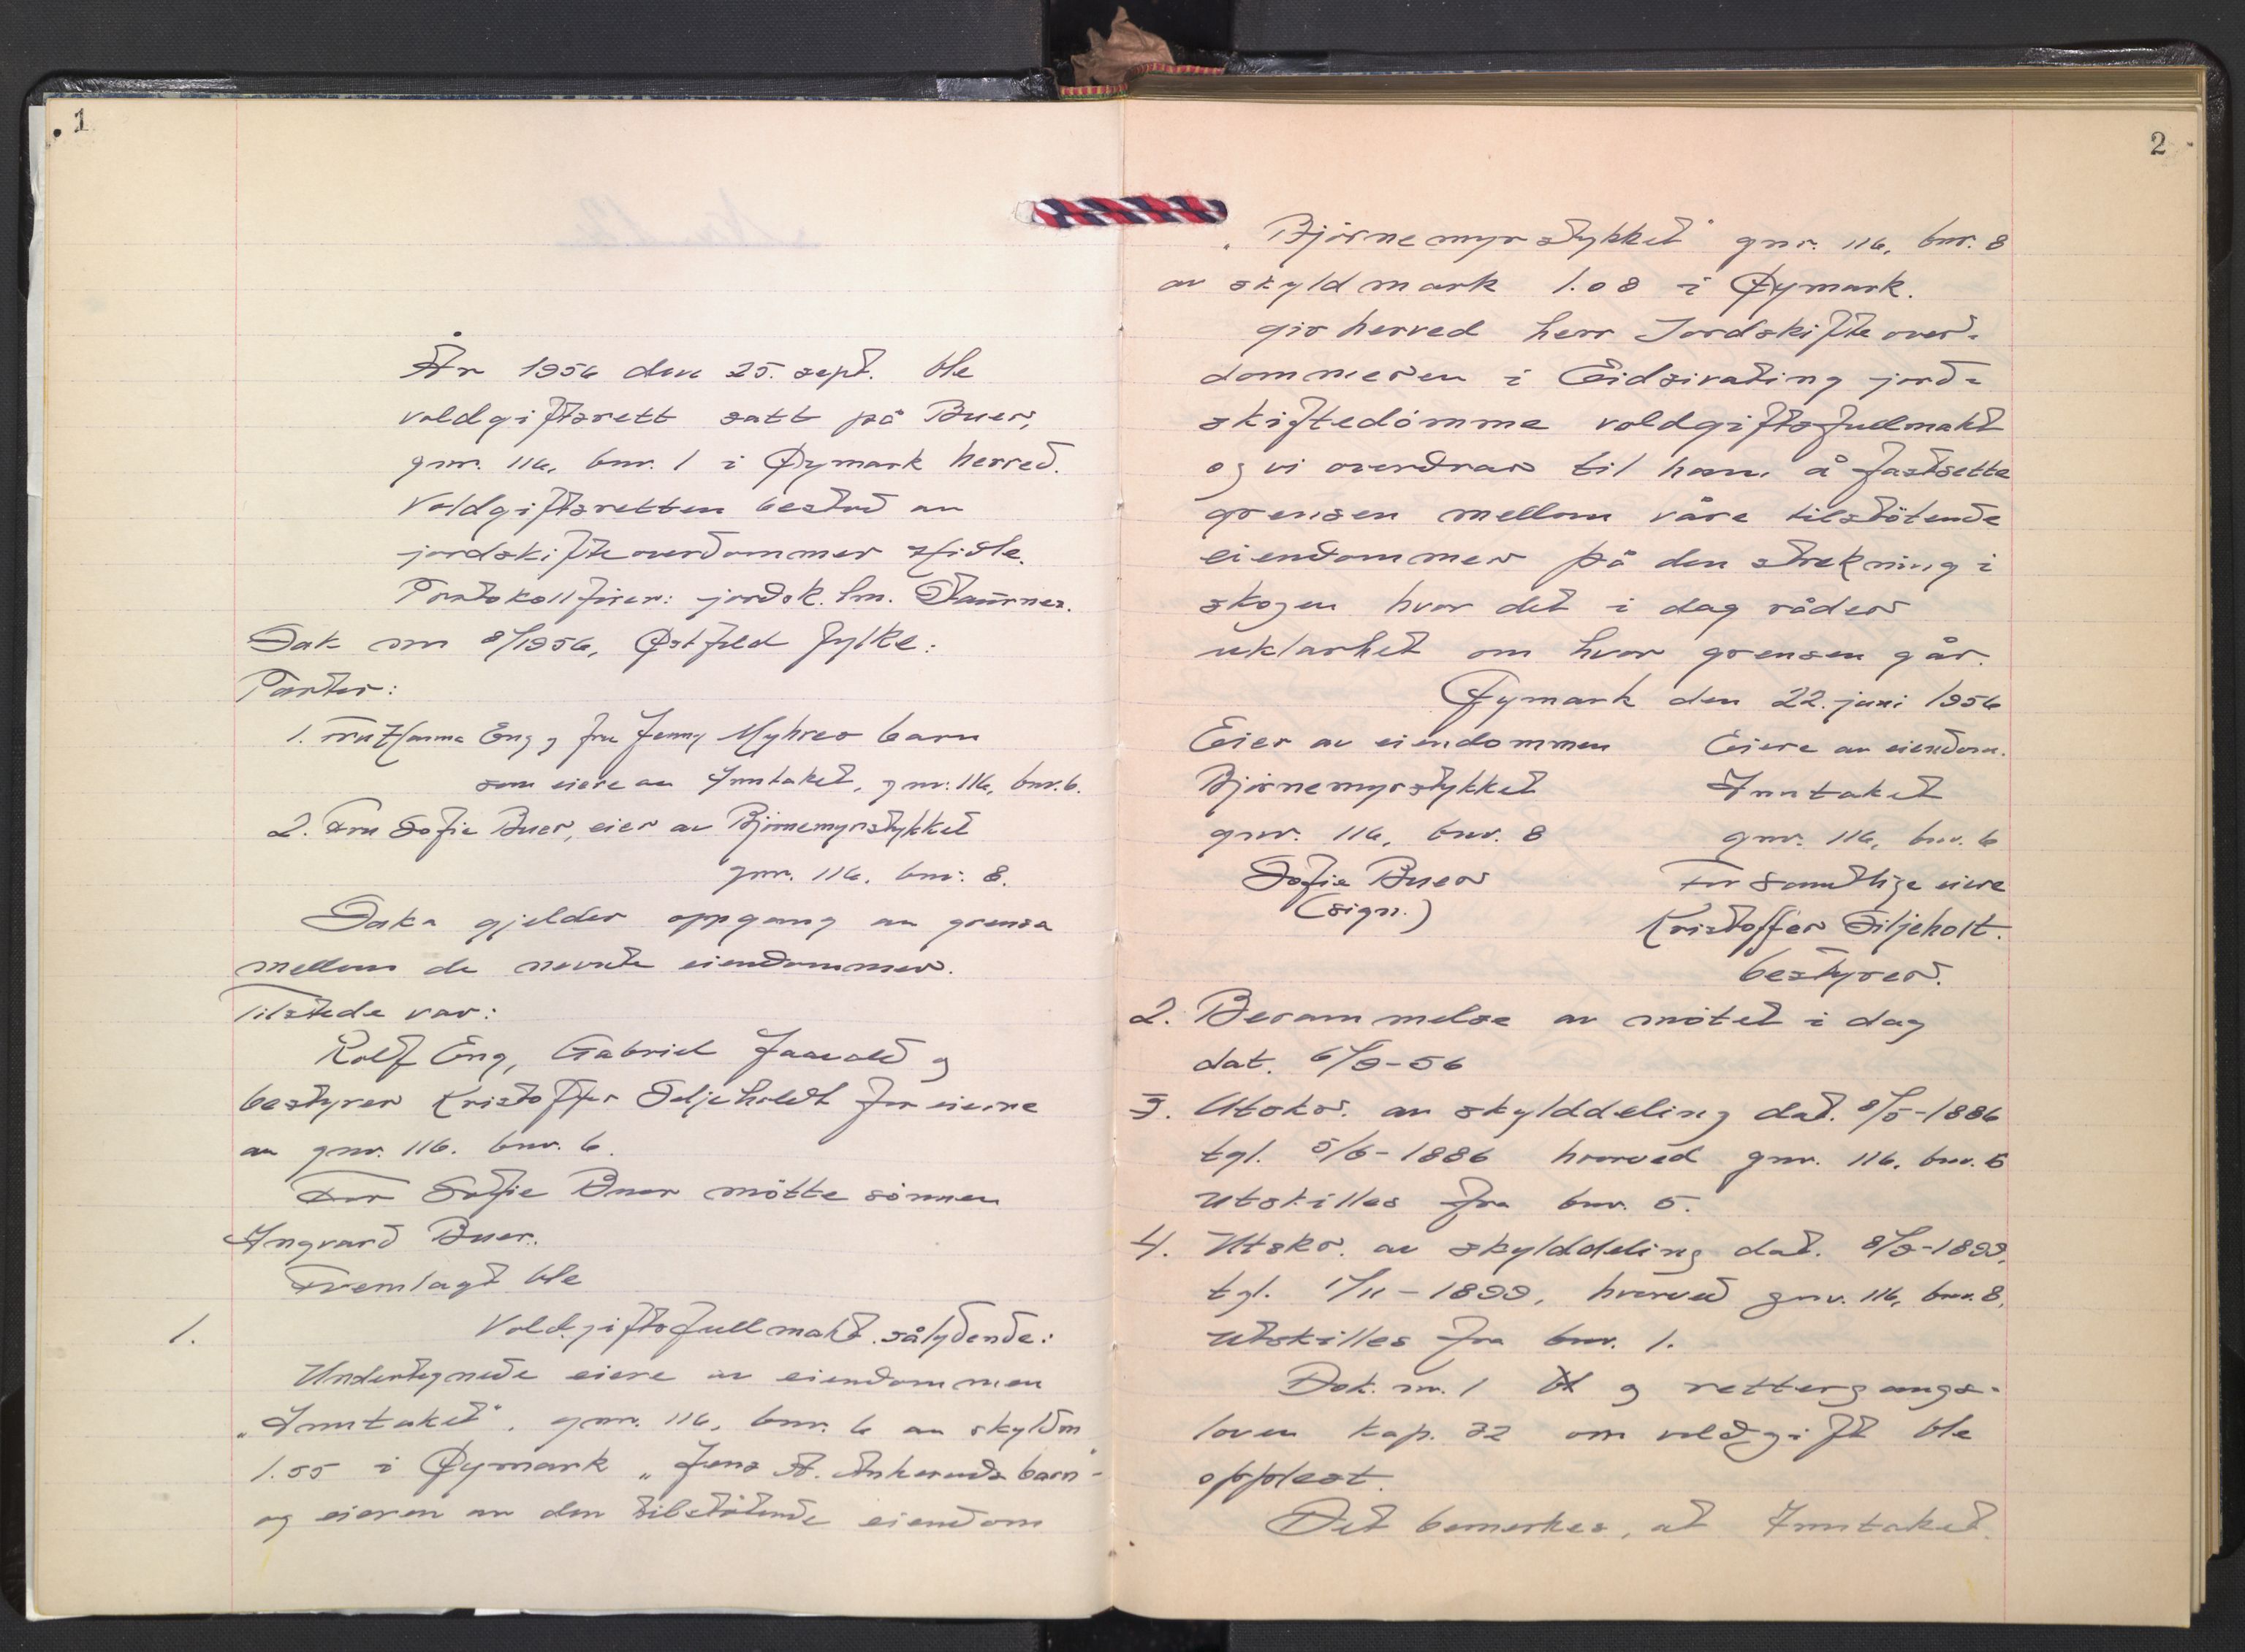 1
År 1956 den 25. sept. ble
voldgiftsrett satt på Buer,
gnr. 116, bnr. 1 i Øymark herred.
Voldgiftsretten bestod av
jordskifteoverdommer
Protokollfører: jordsk. fm.
Sak nr 8/1956, Østfold fylke:
Parter:
1. Fru Hanna Eng og fru Jenny Myhres barn
som eiere av Inntaket, gnr. 116, bnr. 6.
2. Fru Sofie Buer, eier av Bjørnemyrstykket
gnr. 116, bnr. 8.
Saka gjelder oppgang av grensa
mellom de nevnte eiendommer.
Tilstede var:
Rolf Eng, Gabriel og
bestyrer Kristoffer Siljeholdt for eierne
av gnr. 116. bnr. 6.
For Sofie Buer møtte sønnen
Ingvard Buer.
Fremlagt ble
1. Voldgiftsfullmakt sålydende:
Undertegnede eiere av eiendommen
„Inntaket“, gnr. 116, bnr. 6 av skyldm
1.55 i Øymark „Jens A. Ankeruds barn“
og eieren av den tilstøtende eiendom
2
„Bjørnemyrstykket“ gnr. 116, bnr. 8
av skyldmark 1.08 i Øymark.
gir herved herr Jordskifteover-
dommeren i Eidsivating jord-
skiftedømme voldgiftsfullmakt
og vi overdrar til ham å fastsette
grensen mellom våre tilstøtende
eiendommer på den strekning i
skogen hvor det i dag råder
uklarhet om hvor grensen går.
Øymark den 22. juni 1956
Eier av eiendommen Eiere av eiendom.
Bjørnemyrstykket Inntaket
gnr. 116, bnr. 8 gnr. 116, bnr. 6
Sofie Buer For samtlige eiere
(sign.) Kristoffer Siljeholt.
bestyrer.
2. Berammelse av møtet i dag
dat. 6/9-56
3. Utskr. av skylddeling dat. 8/5-1886
tgl. 5/6-1886 hvorved gnr. 116, bnr. 6
utskilles fra bnr. 5.
4. Utskr. av skylddeling dat. 8/9-1899,
tgl. 1/11-1899, hvorved gnr. 116, bnr. 8,
utskilles fra bnr. 1.
Dok. nr. 1 og rettergangs-
loven kap. 32 om voldgift ble
opplest.
Det bemerkes, at Inntaket